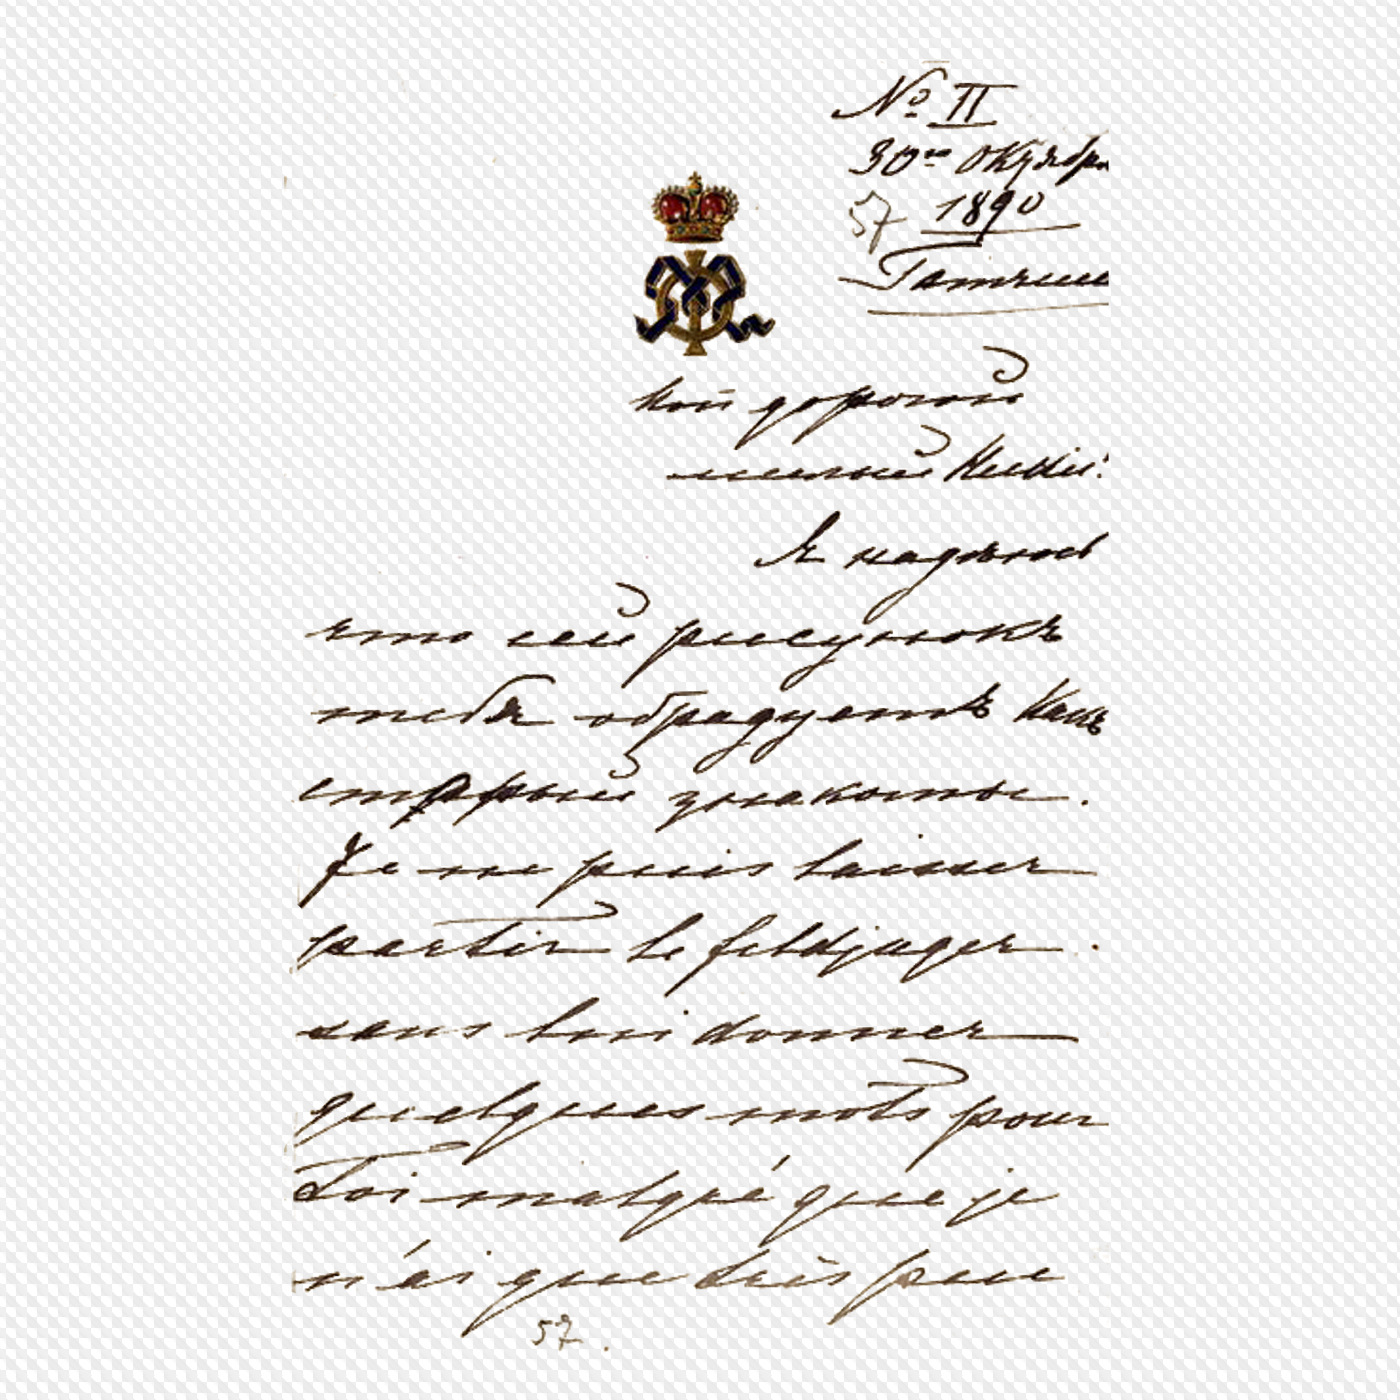 № II
30го Октября
57 1890
Гатчина
Мой дорогой
милый Ники!
Я надѣюсь
что сей рисунокъ
тебя обрадуетъ Какъ
старый знакомы.
Je ne puis laisser
partir le feldjäger.
sans lui donner
quelques mots pour
Toi malgré que je
n'ai que très peu
57.